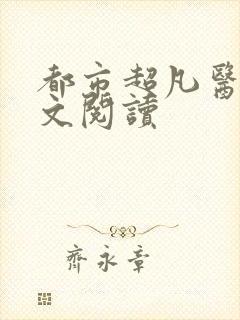 都市超凡醫
文閱讀
齊永章